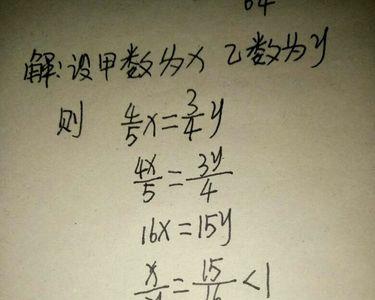 64
解:设甲数为x 乙数为y
则 4/5x=3/4y
4x/5=3y/4
16x=15y
x/y=15/16<1